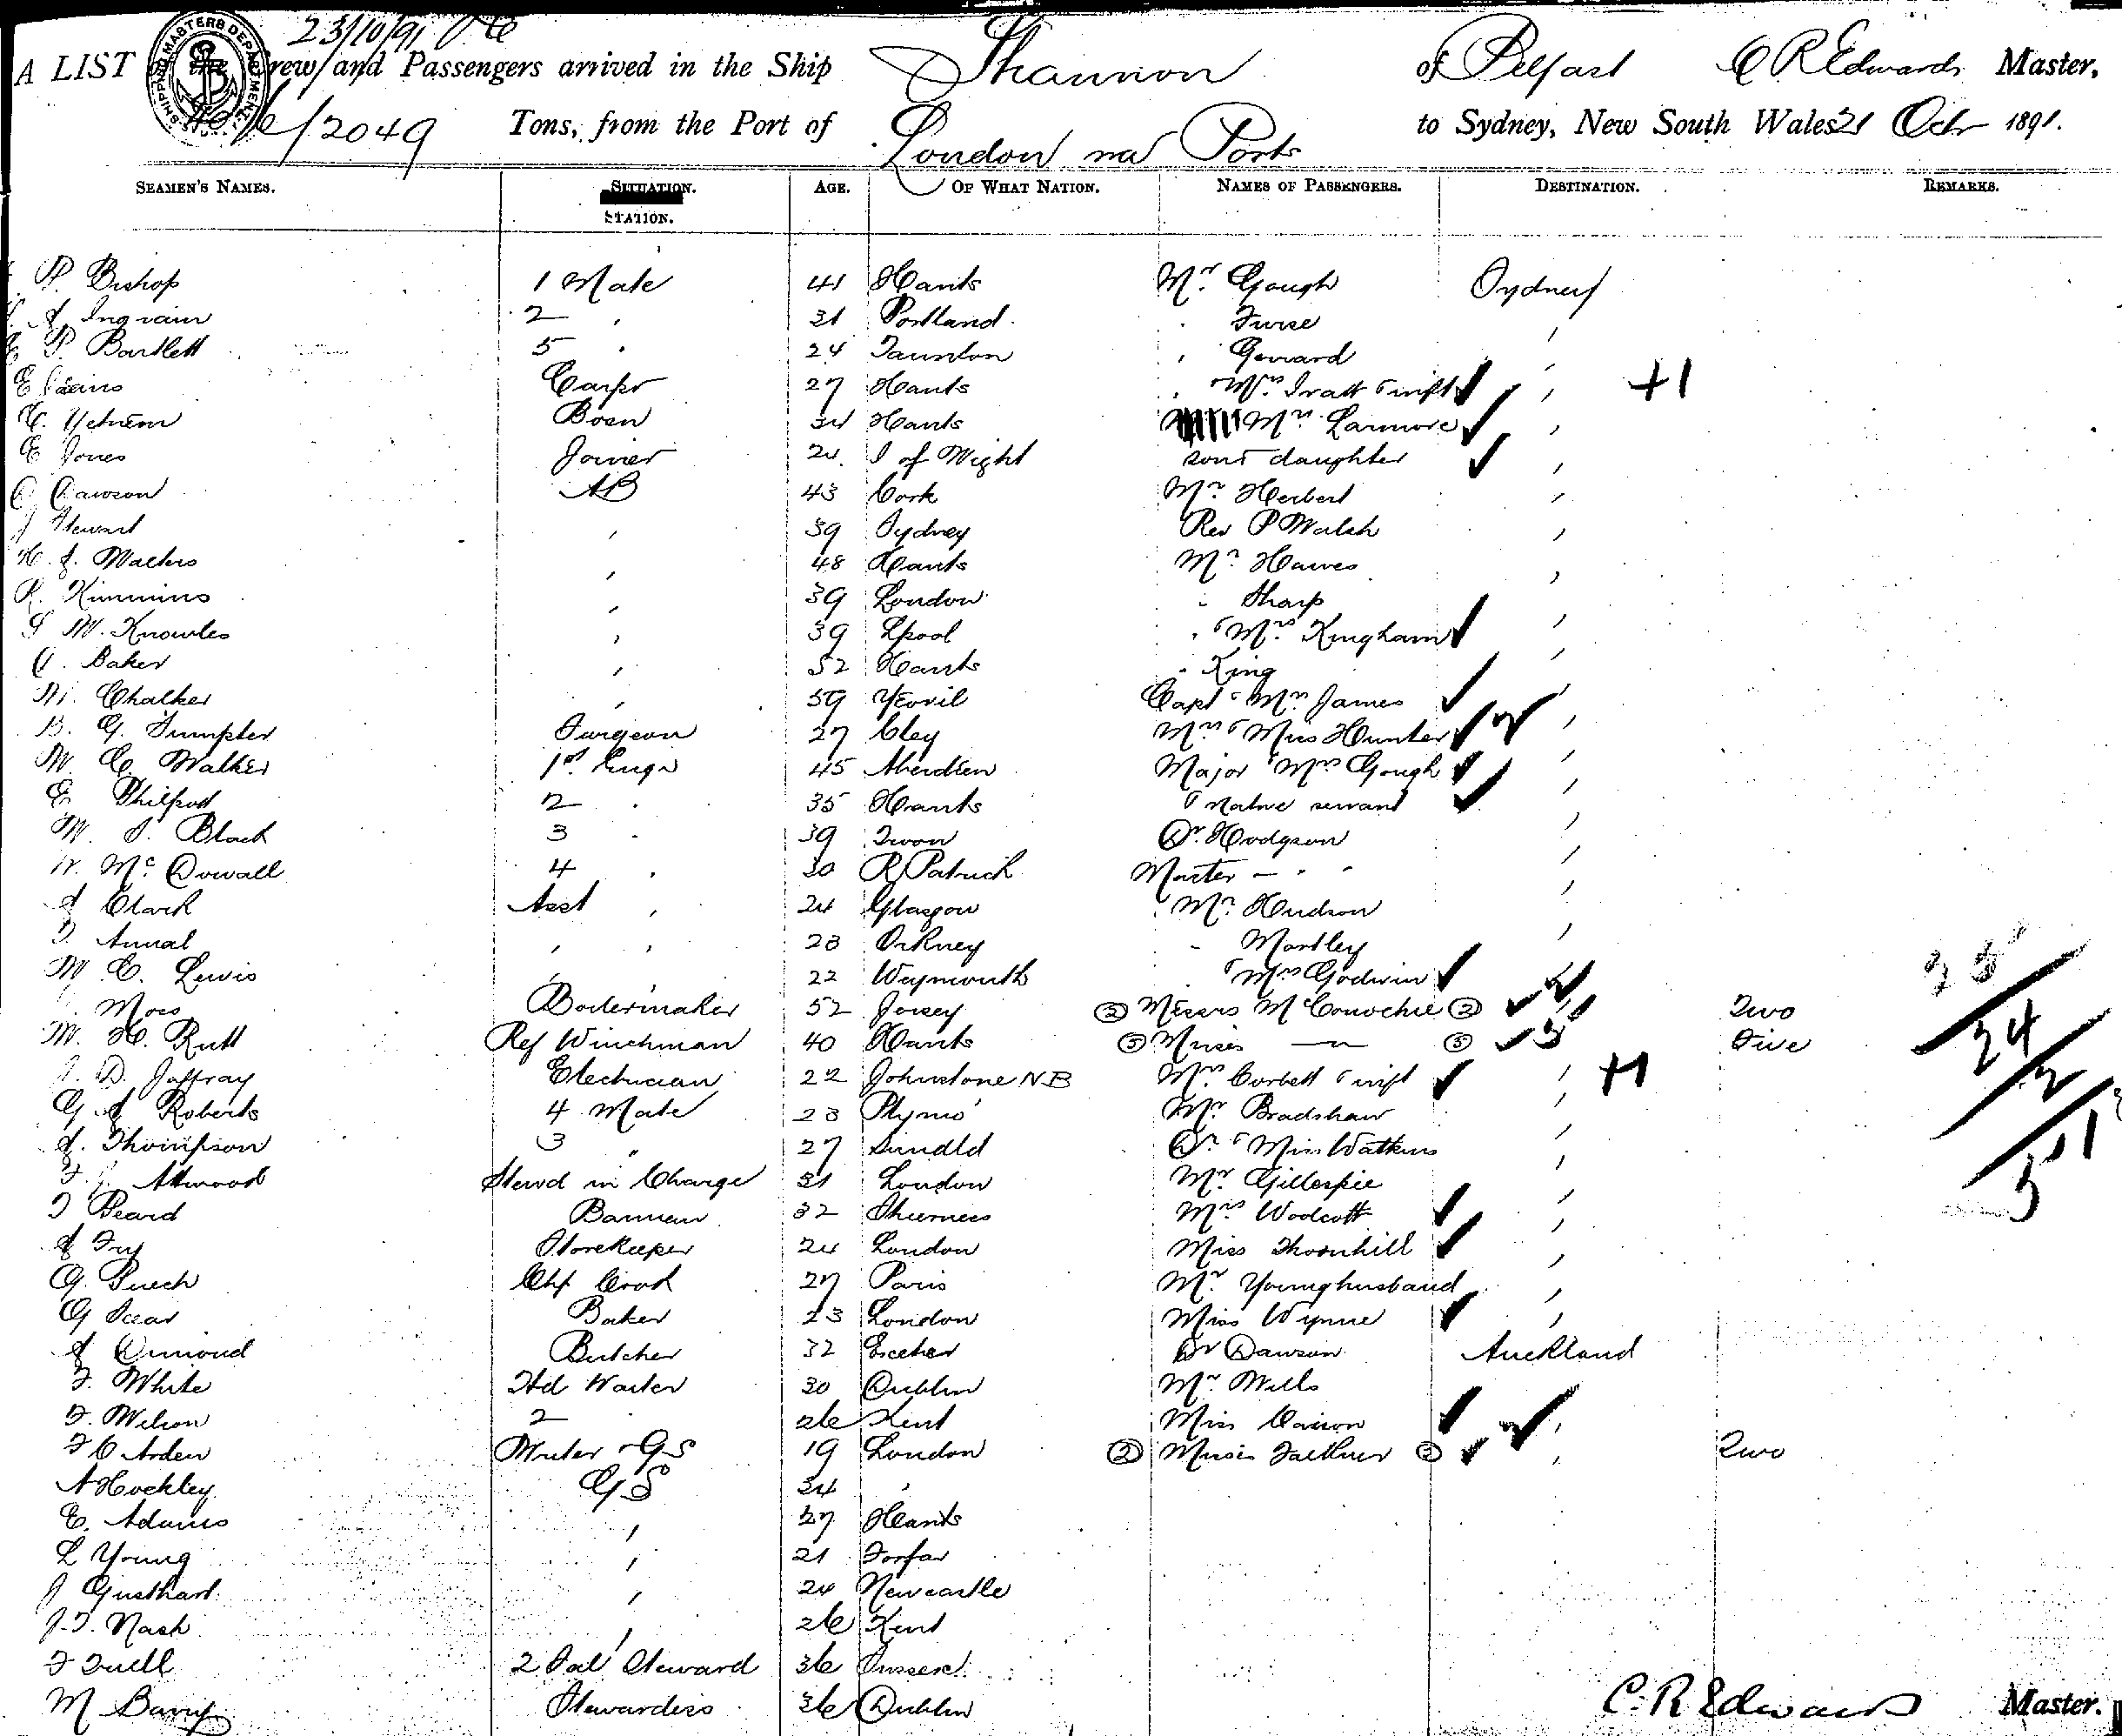 23/10/91
A LIST of the Crew and Passengers arrived in the Ship Shannon of Belfast C R Edwards Master,
SHIPPING MASTERS DEPARTMENT
2049 Tons, from the Port of London Ports to Sydney, New South Wales 21 Octr 1891.
SEAMEN'S NAMES. SITUATION. STATION. AGE. OF WHAT NATION. NAMES OF PASSENGERS. DESTINATION. REMARKS.
P. Bishop 1 Mate 41 Hants Mr. Gough Sydney
A. Ingram 2 " 31 Portland " Furse "
P. Bartlett 5 " 24 Taunton " Gerrard "
E Carpr 27 Hants " Mrs Pratt & inft " +1
C. Bosn 34 Hants Mrs. Larmore "
E Jones Joiner 24 I of Wight son & daughter "
C. Dawson AB 43 Cork Mr Herbert "
J Stewart " 39 Sydney Rev P Walsh "
H. J. Walters " 48 Hants Mr Hawes "
R. Kimmins " 39 London " Sharp "
S W. Knowles " 39 Lpool " & Mrs Kingham "
G. Baker " 52 Hants " King "
W. Chalker " 59 Yeovil Capt & Mrs James "
B. G. Sumpter Surgeon 27 Cley Mrs & Miss Hunter 2 "
W. C. Walker 1st Engr 45 Aberdeen Major & Mrs Gough "
E. Philpott 2 " 35 Hants & Native servant "
W. J. Black 3 " 39 Dr. Hodgson "
W. Mc Dowall 4 " 30 K Patrick Master — " " "
A Clark Asst " 24 Glasgow Mr Hudson "
J. Annal " " 23 Orkney " Martley "
W. C. Lewis " 22 Weymouth " & Mrs Godwin "
Moss Boilermaker 52 Jersey (2) Messrs McConochie (2) 2 " Two
W. H. Rutt Ref Winchman 40 Hants (5) Misses — " — (5) 5 " Five
D. Jaffray Electrician 22 Johnstone N.B Mrs Corbett & inft " +1
G. A Roberts 4 Mate 23 Plymo Mr Bradshaw "
A. Thompson 3 " 27 Sundld Dr & Miss Watkins "
F. Attwood Stewd in Charge 31 London Mr Gillespie "
J Beard Barman 32 Sheerness Mrs Woolcott "
A Fry Storekeeper 24 London Miss Thornhill "
G. Puech Chf Cook 27 Paris Mr Younghusband "
G Baker 23 London Miss Wynne "
A Dimond Butcher 32 Exeter Dr Dawson Auckland
F. White Hd Waiter 30 Dublin Mr Wills "
F. Wilson 2 " 26 Kent Miss 2 "
F C Arden Writer & GS 19 London (2) Misses Faulkner (2) " Two
A Hockley GS 34 "
E. Adams " 27 Hants
L Young " 21 Forfar
J Gusthart " 24 Newcastle
J. F. Nash " 26 Kent
F Tuell 2 Sal Steward 36 Sussex
M Barry Stewardess 36 Dublin
24
2
51
C. R Edwards Master.